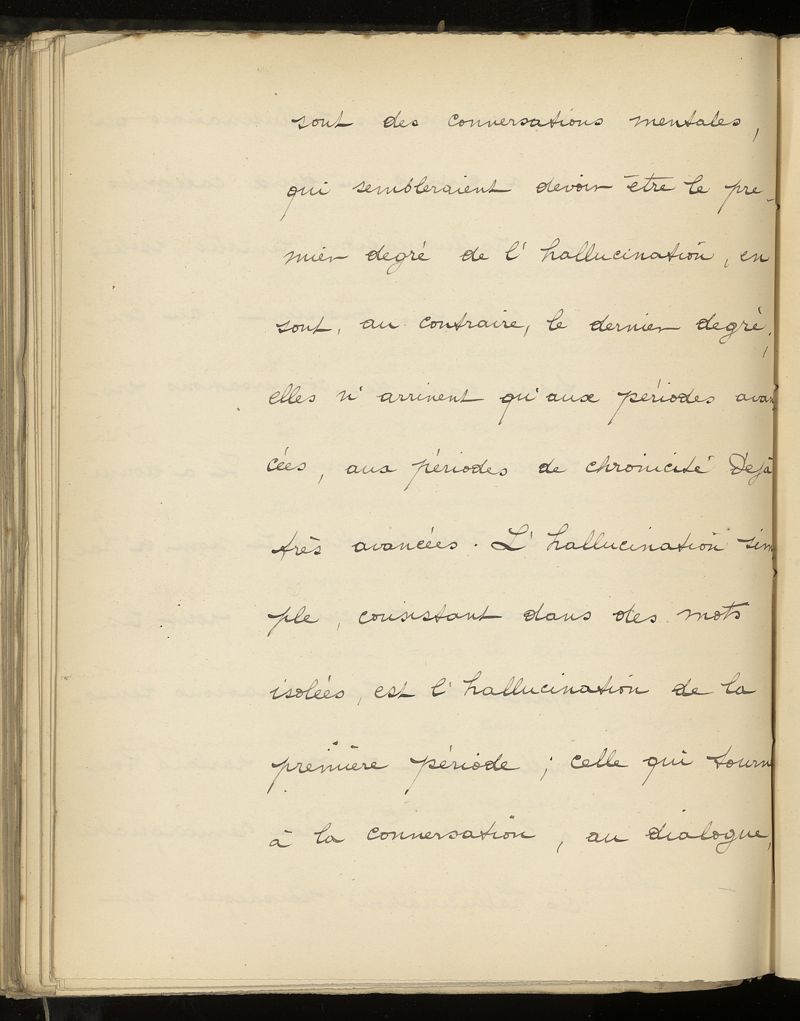 sont des conversations mentales,
qui sembleraient devoir être le pre-
mier degré de l'hallucination, en
sont, au contraire, le dernier degré;
elles n'arrivent qu'aux périodes avan
cées, aux périodes de chronicité Déjà
très avancées. L'hallucination sim
ple, consistant dans des mots
isolées, est l'hallucination de la
première période; celle qui tourn
à la conversation, au dialogue,